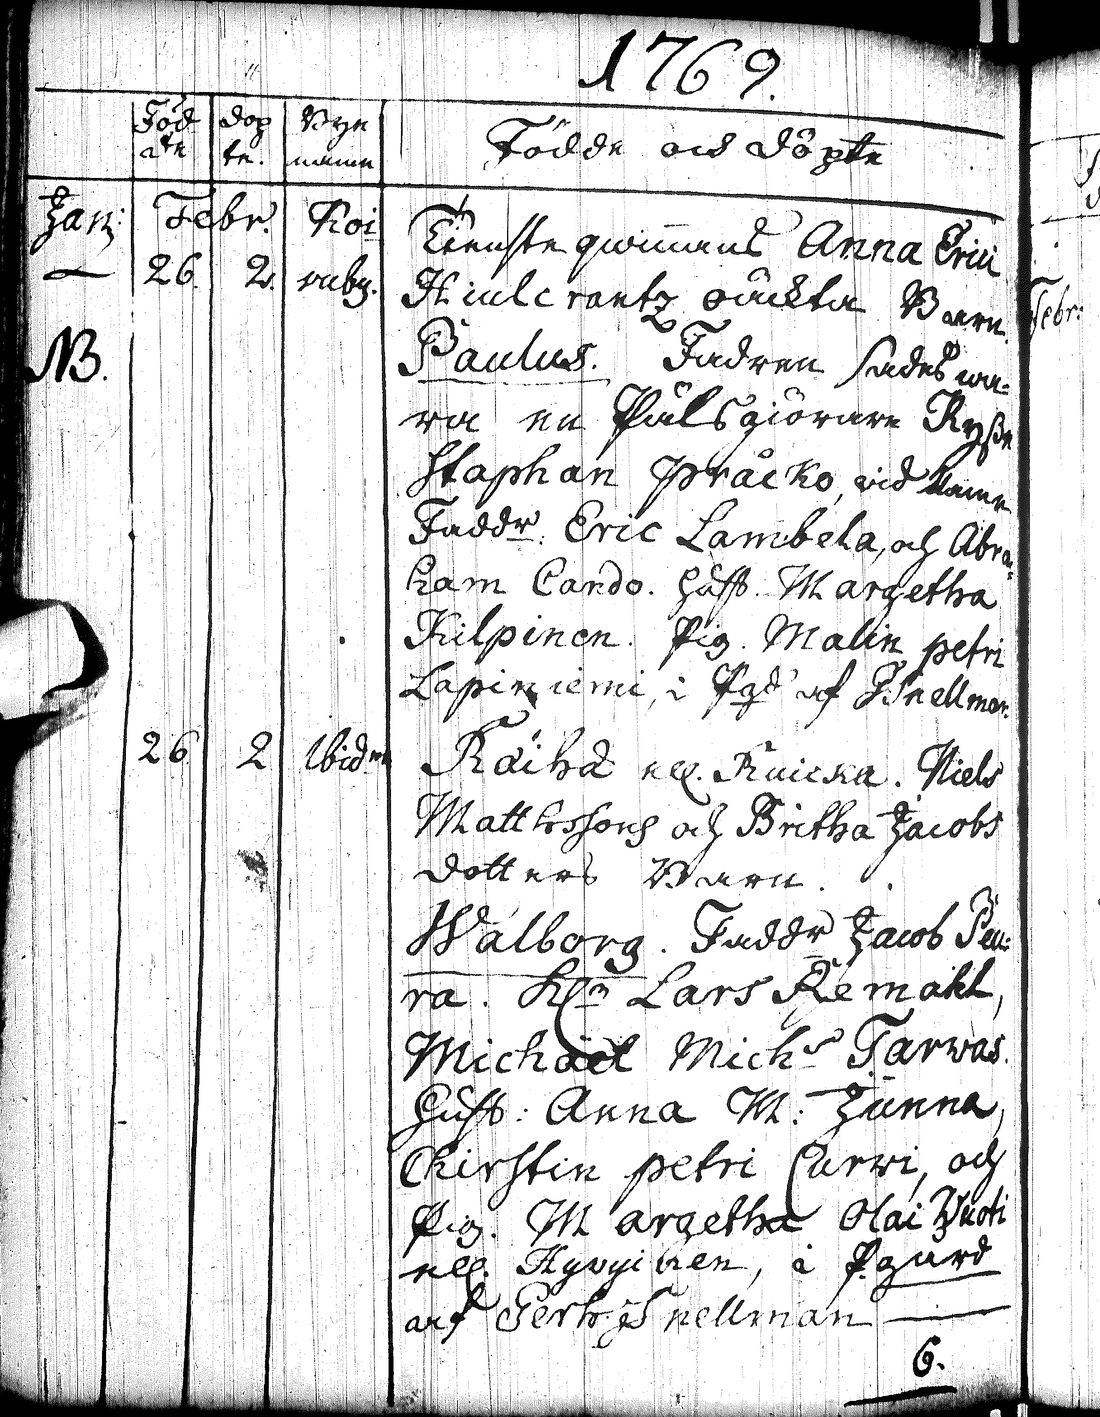 1769.
Föd
de
döp
te.
Byn
namn
Födde och döpte
Janj:
Febr.
Koi
Tienste qwinnans Anna Erici
26. 2. ruby.
Hiulcrantz oäckta Barn
NB.
Paulus. Fadren sades wa=
ra en Pälsgiörare Rysse
Staphan pråcko, vid namn
Faddr. Eric Lambela, och Abra=
ham Cando. Hust. Margetha
Kilpinen. Pig. Malin petri
Lapinniemi, i Pgd af Snellman.
26 2 Ibidm
Räihä ell. Knicka. Niels
Matthssons och Britha Jacobs
dotters Barn.
Walborg. Faddr Jacob Peu=
ra. Lars Remahl,
Michäel Michs Tarwas.
Hust: Anna M: Junna,
Chirstin petri Curwi, och
Pig. Margetha Olai Vuoti
ell. Hyvyinen, i Pgård
af Gerh. Snellman
6.
Febr: